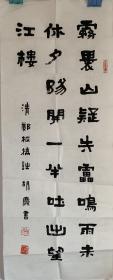 霧裏山疑失雷鳴雨未
休夕陽開一半吐出望
江樓
清鄭板橋詩